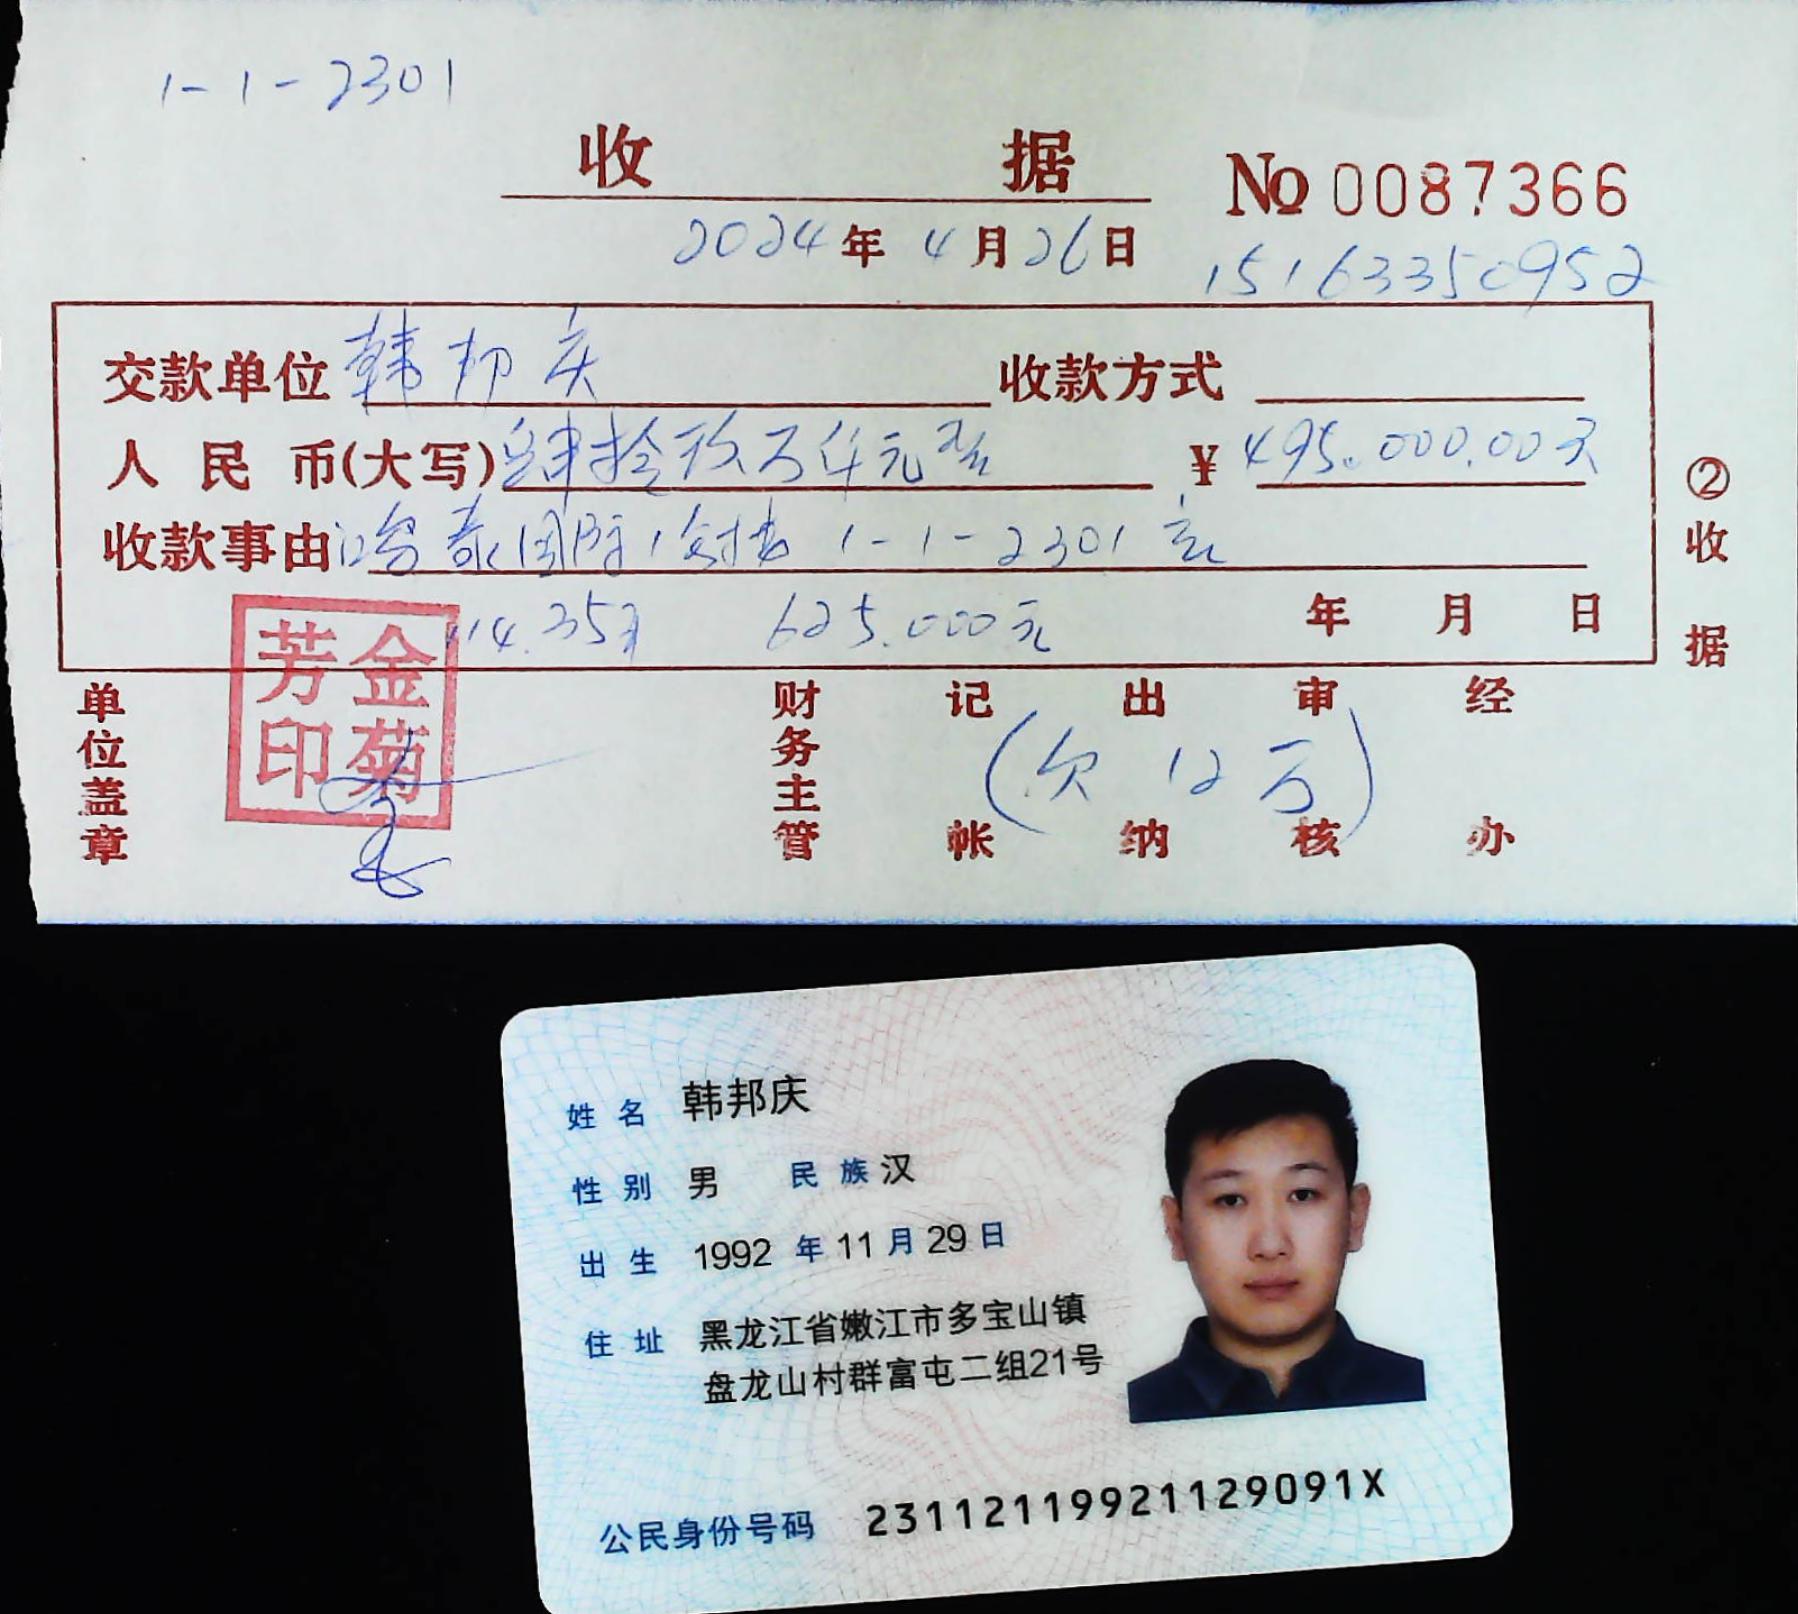 1-1-2301
收 据 No 0087366
2024年4月26日 15163350952
交款单位 韩邦庆 收款方式
人民币(大写) 肆拾玖万仟元整 ¥ 495.000.00元
收款事由 1-1-2301
114.35 625.000元 年 月 日
② 收据
单位盖章 财务主管 记帐 出纳 审核 经办
金菊芳印
(欠12万)
姓名 韩邦庆
性别 男 民族 汉
出生 1992年11月29日
住址 黑龙江省嫩江市多宝山镇
盘龙山村群富屯二组21号
公民身份号码 23112119921129091X